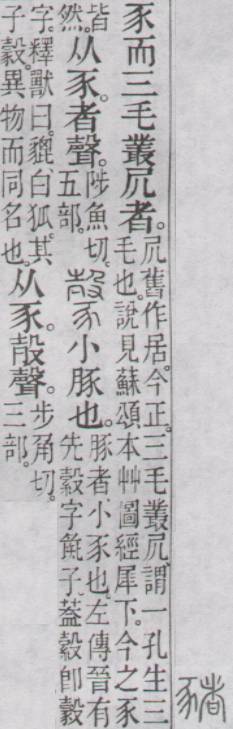 豬
豕而三毛叢凥者。凥舊作居。今正。三毛叢凥、謂一孔生三
毛也。說見蘇頌本艸圖經犀下。今之豕
皆然。从豕。者聲。陟魚切。五部。
豰小豚也。豚者、小豕也。左傳晉有
先縠字彘子。蓋縠卽豰
字。釋獸曰。貔、白狐。其
子豰。異物而同名也。从豕。𣪊聲。步角切。三部。